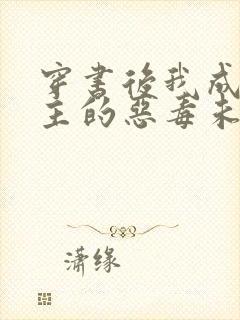 穿书后我成
主的恶毒未
潇缘